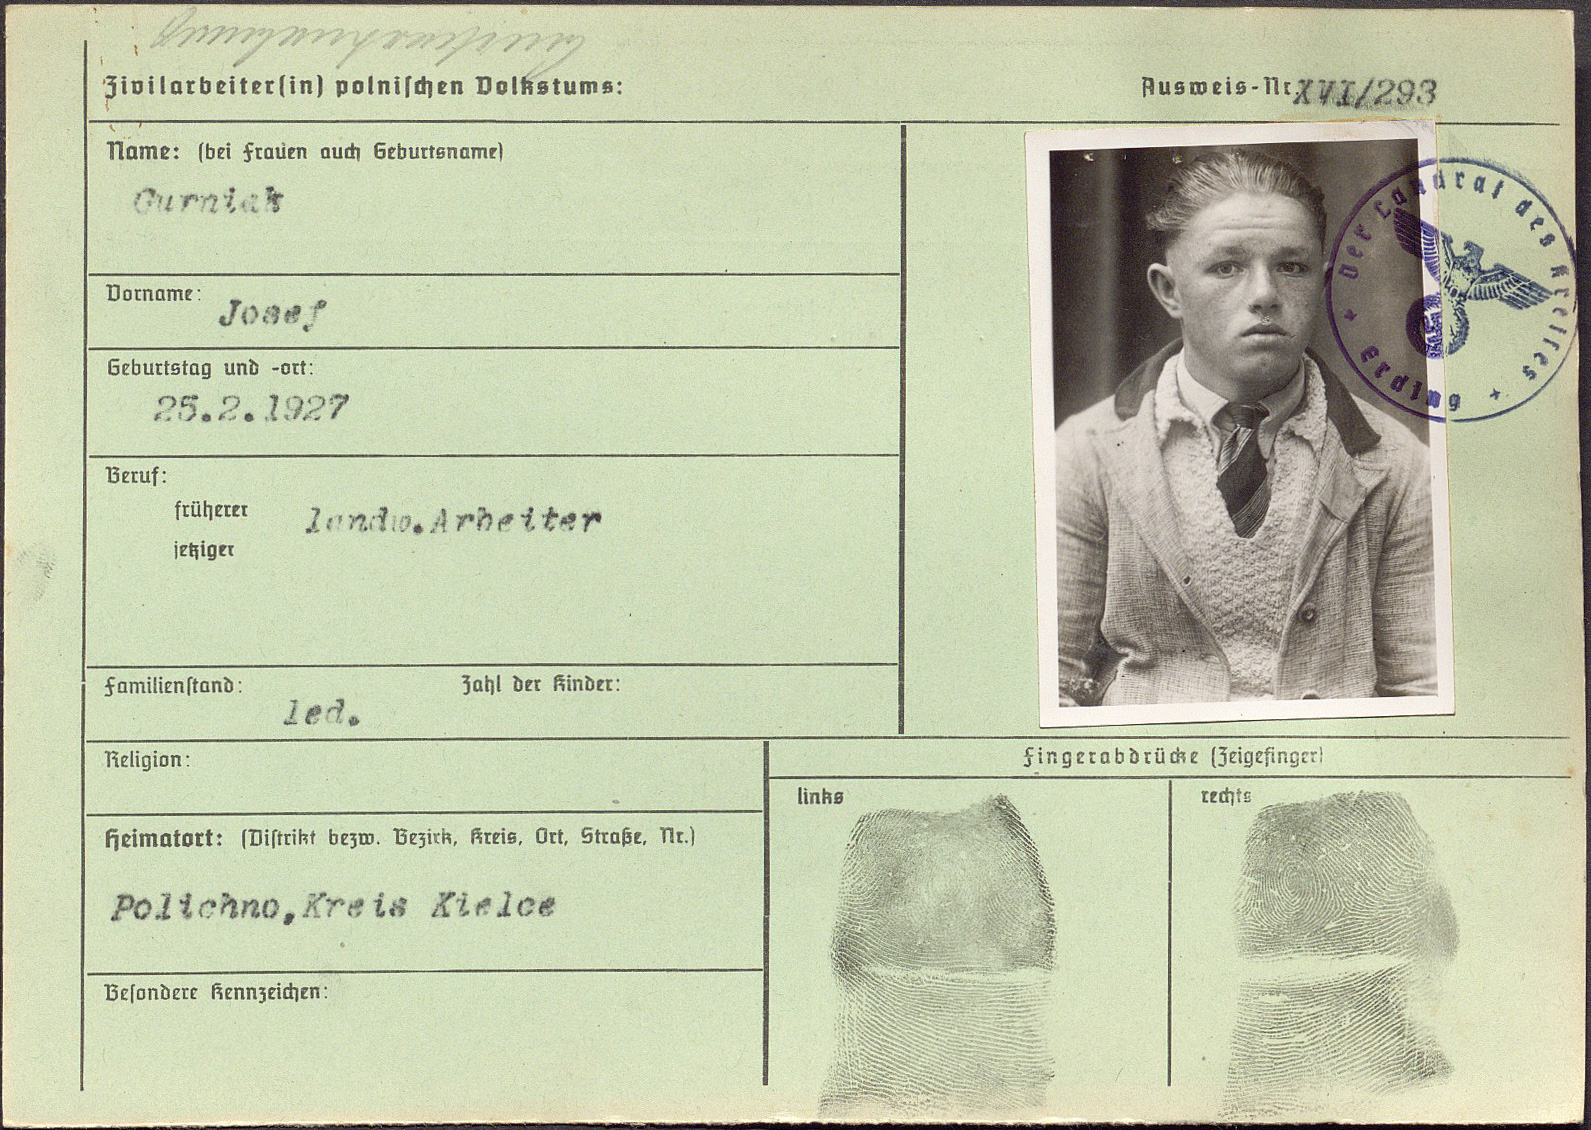 Zivilarbeiter(in) polnischen Volkstums:
Ausweis-Nr. XVI/293
Name: (bei Frauen auch Geburtsname)
Gurniak
Vorname: Josef
Geburtstag und -ort:
25.2.1927
Beruf:
früherer
landw.Arbeiter
jetziger
Familienstand: led.
Zahl der Kinder:
Religion:
Heimatort: (Distrikt bezw. Bezirk, Kreis, Ort, Straße, Nr.)
Polichno,Kreis Kielce
Besondere Kennzeichen:
Fingerabdrücke (Zeigefinger)
links
rechts
Der Landrat des Kreises